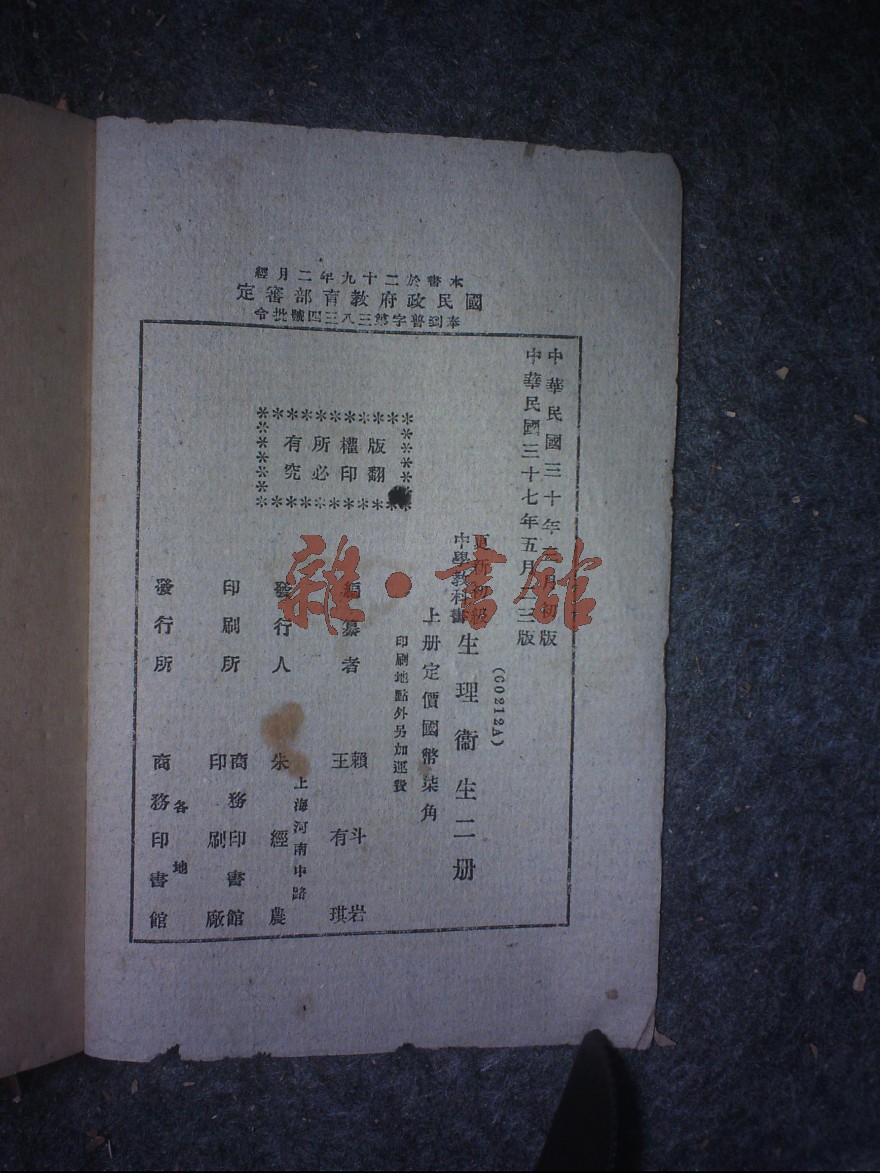 本書於二十九年二月經
國民政府教育部審定
奉到普字第三八三四號批令
中華民國三十年三月初版
中華民國三十七年五月二三版
(60212A)
更新初級
中學教科書
生理衞生二册
上册定價國幣柒角
印刷地點外另加運費
版權所有
翻印必究
編纂者
賴斗岩
王有琪
發行人
上海河南中路
朱經農
印刷所
商務印書館
印刷廠
發行所
各地
商務印書館
雜·書館